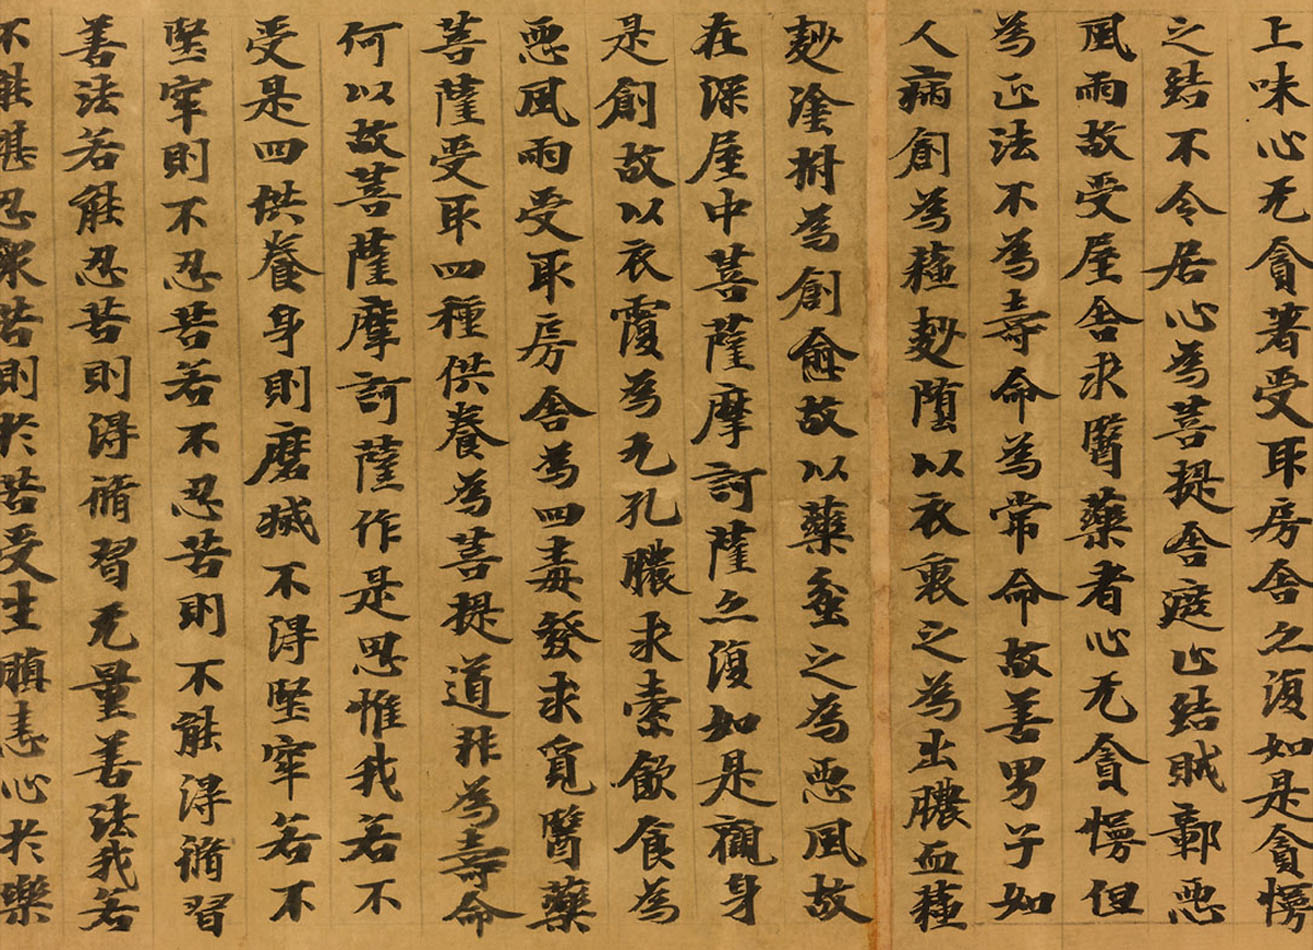 上味心无貪著受取房舍亦復如是貪慢
之結不令居心為菩提舍遮止結賊鄣惡
風雨故受屋舍求醫藥者心无貪慢但
為正法不為壽命為常命故善男子如
人病創為穌麨堕以衣裹之為出膿血穌
麨塗拊為創愈故以藥坌之為惡風故
在深屋中菩薩摩訶薩亦復如是觀身
是創故以衣覆為九孔膿求索飲食為
惡風雨受取房舍為四毒發求覓醫藥
菩薩受取四種供養為菩提道非為壽命
何以故菩薩摩訶薩作是思惟我若不
受是四供養身則磨滅不得堅牢若不
堅牢則不忍苦若不忍苦則不能得脩習
善法若能忍苦則得脩習无量善法我若
不能堪忍眾苦則於苦受生瞋恚心於樂